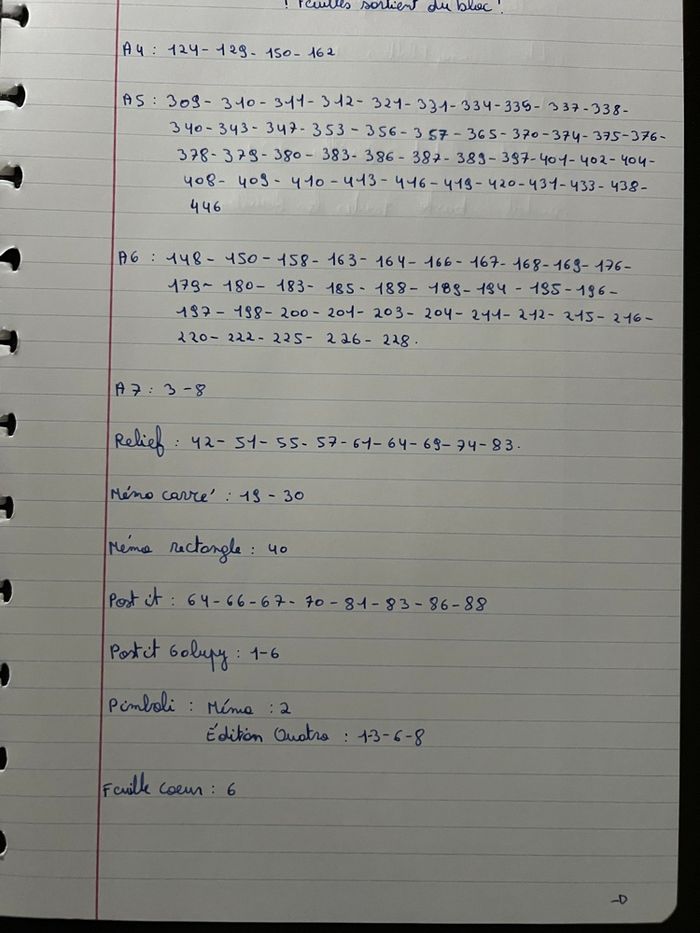 ! Feuilles sortient du bloc !
A4 : 124 - 129 - 150 - 162
A5 : 309 - 310 - 311 - 312 - 321 - 331 - 334 - 335 - 337 - 338 -
340 - 343 - 347 - 353 - 356 - 357 - 365 - 370 - 374 - 375 - 376 -
378 - 379 - 380 - 383 - 386 - 387 - 389 - 397 - 401 - 402 - 404 -
408 - 409 - 410 - 413 - 416 - 419 - 420 - 431 - 433 - 438 -
446
A6 : 148 - 150 - 158 - 163 - 164 - 166 - 167 - 168 - 169 - 176 -
179 - 180 - 183 - 185 - 188 - 189 - 194 - 195 - 196 -
197 - 198 - 200 - 201 - 203 - 204 - 211 - 212 - 215 - 216 -
220 - 222 - 225 - 226 - 228.
A7 : 3 - 8
Relief : 42 - 51 - 55 - 57 - 61 - 64 - 69 - 74 - 83.
Mémo carré : 19 - 30
Mémo rectangle : 40
Post it : 64 - 66 - 67 - 70 - 81 - 83 - 86 - 88
Post it Golupy : 1 - 6
Pimboli : Mémo : 2
Édition Quatro : 1-3-6-8
Feuille coeur : 6